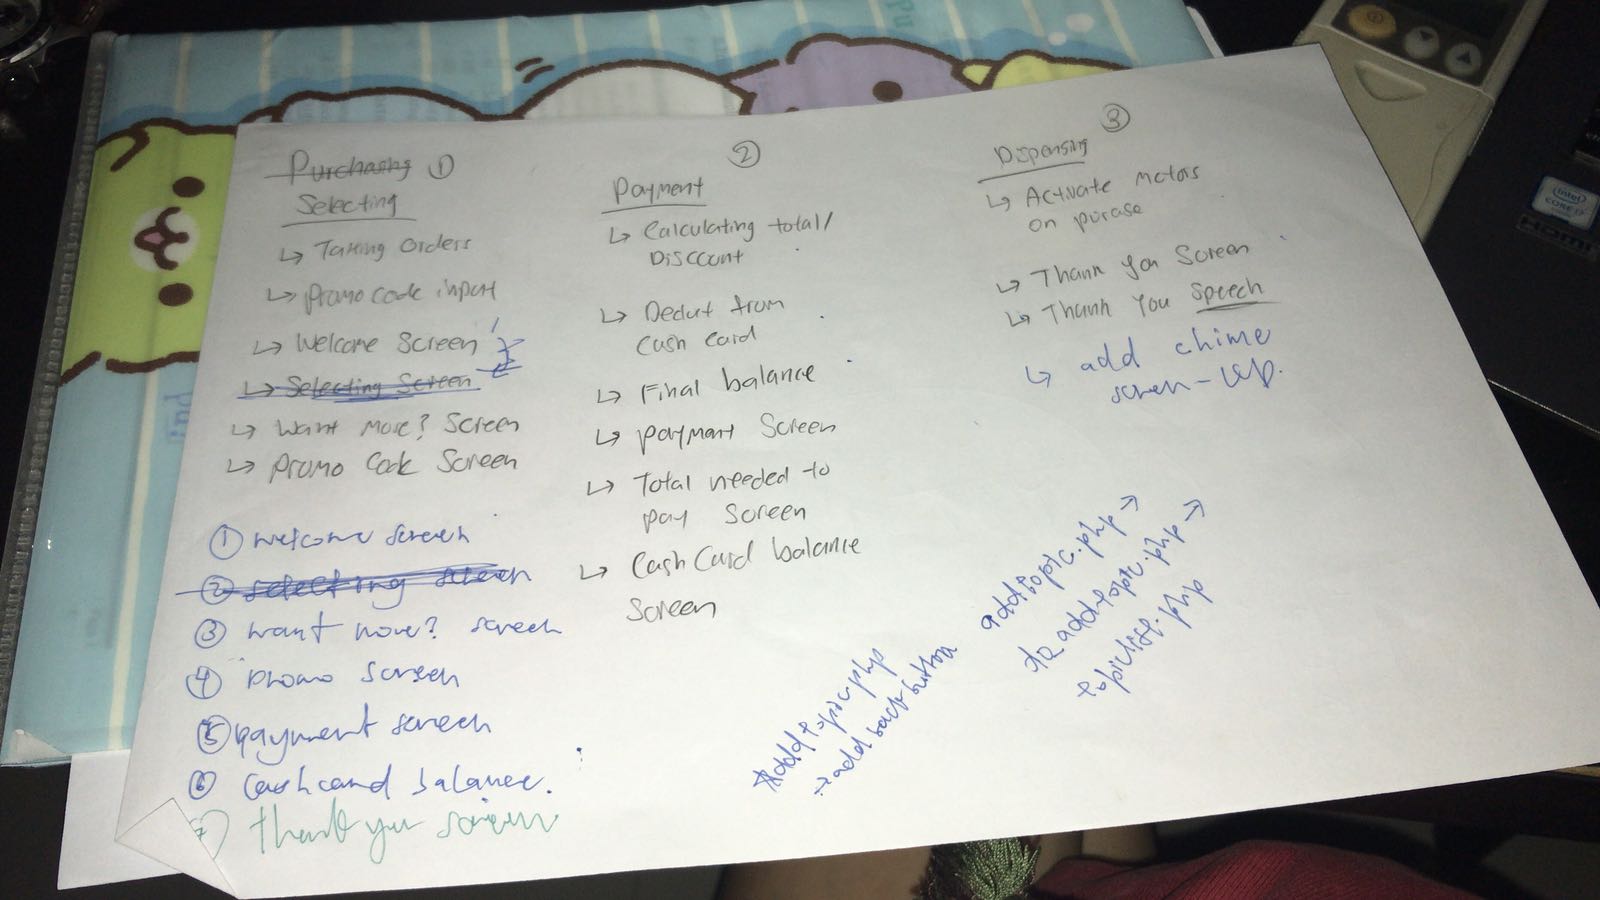 Purchasing ①
Selecting
↳ Taking Orders
↳ Promo code input
↳ Welcome Screen
↳ Selecting Screen
↳ Want More? Screen
↳ Promo Code Screen
① welcome screen
② selecting screen
③ want more? screen
④ promo screen
⑤ payment screen
⑥ cashcard balance.
⑦ thank you screen
②
Payment
↳ Calculating total/
Discount
↳ Deduct from
Cash Card
↳ Final balance
↳ Payment Screen
↳ Total needed to
pay Screen
↳ Cash Card balance
Screen
③
Dispensing
↳ Activate Motors
on purase
↳ Thank You Screen
↳ Thank You Speech
↳ add chime
addtopic.php →
do addtopic.php →
topiclist.php
*addtopic.php
→ add back button
intel
CORE i7
HDMI